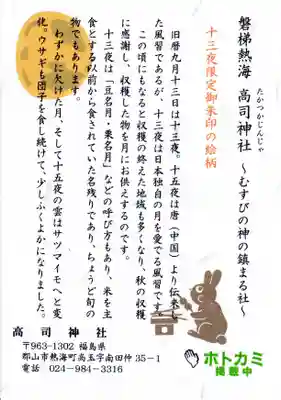 たかつかさじんじゃ
磐梯熱海 高司神社 ～むすびの神の鎮まる社～
十三夜限定御朱印の絵柄
旧暦九月十三日は十三夜。十五夜は唐（中国）より伝来し
た風習であるが、十三夜は日本独自の月を愛でる風習です。
この頃にもなると収穫の終えた地域も多くなり、秋の収穫
に感謝し、収穫した物を月にお供えするのです。
十三夜は「豆名月・栗名月」などの呼び方もあり、米を主
食とする以前から食されていた名残りであり、ちょうど旬の
物でもあります。
わずかに欠けた月、そして十五夜の雲はサツマイモへと変
化。ウサギも団子を食し続けて、少しふくよかになりました。
高司神社
〒963-1302 福島県
郡山市熱海町高玉字南田仲35-1
電話 024-984-3316
ホトカミ
掲載中